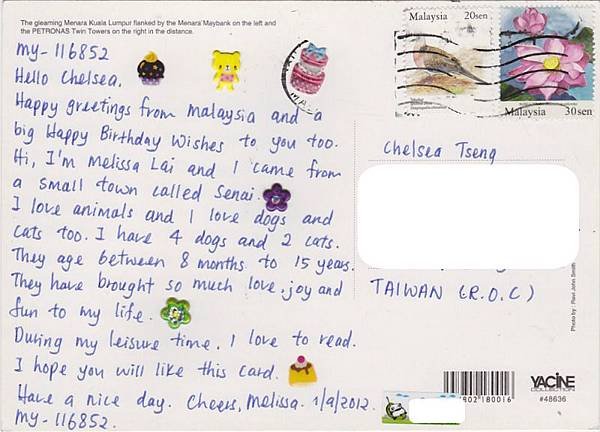 The gleaming Menara Kuala Lumpur flanked by the Menara Maybank on the left and
the PETRONAS Twin Towers on the right in the distance.
my-116852
Hello Chelsea,
Happy greetings from malaysia and a
big Happy Birthday Wishes to you too.
Hi, I'm Melissa Lai and I came from
a small town called Senai.
I love animals and I love dogs and
cats too. I have 4 dogs and 2 cats.
They age between 8 months to 15 years.
They have brought so much love, joy and
fun to my life.
During my leisure time, I love to read.
I hope you will like this card.
Have a nice day. Cheers, Melissa. 1/9/2012.
my-116852.
Malaysia 20sen
Malaysia 30sen
Chelsea Tseng
TAIWAN (R.O.C)
Photo by: Ravi John Smith
802 180016
YACINE
COLLECTION
#48636